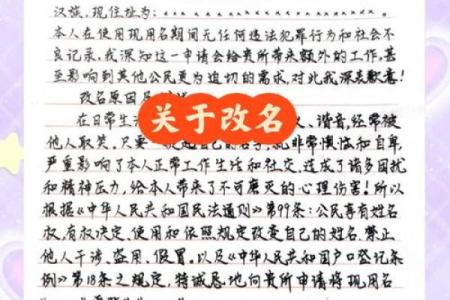 汉族，现住址为：
本人在使用现用名期间无任何违法犯罪行为和社会不
良记录，我深知这一申请会给贵所带来额外的工作，甚
至影响到其他公民更为迫切的需求，对此我深表歉意！
改名原因
在日常生活 义、谐音，经常被
关于改名
他人取笑，只要一 起自己的名字，就非常懊恼和自卑，
严重影响了本人正常工作生活和社交，造成了诸多困扰
和精神压力，给本人带来了不可磨灭的心理伤害！所以
根据《中华人民共和国民法通则》第99条：公民享有姓名
权，有权决定、使用和依照规定改变自己的姓名，禁止
他人干涉、盗用、假冒。以及《中华人民共和国户口登记条
例》第18条之规定，特诚恳地向贵所申请将现用名